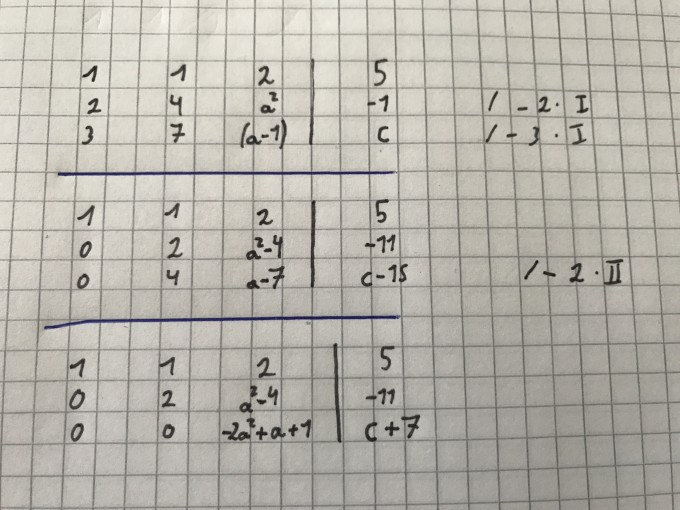 1 1 2 | 5
2 4 a² | -1 / - 2 · I
3 7 (a-1) | c / - 3 · I
1 1 2 | 5
0 2 a²-4 | -11
0 4 a-7 | c-15 / - 2 · II
1 1 2 | 5
0 2 a²-4 | -11
0 0 -2a²+a+1 | c+7